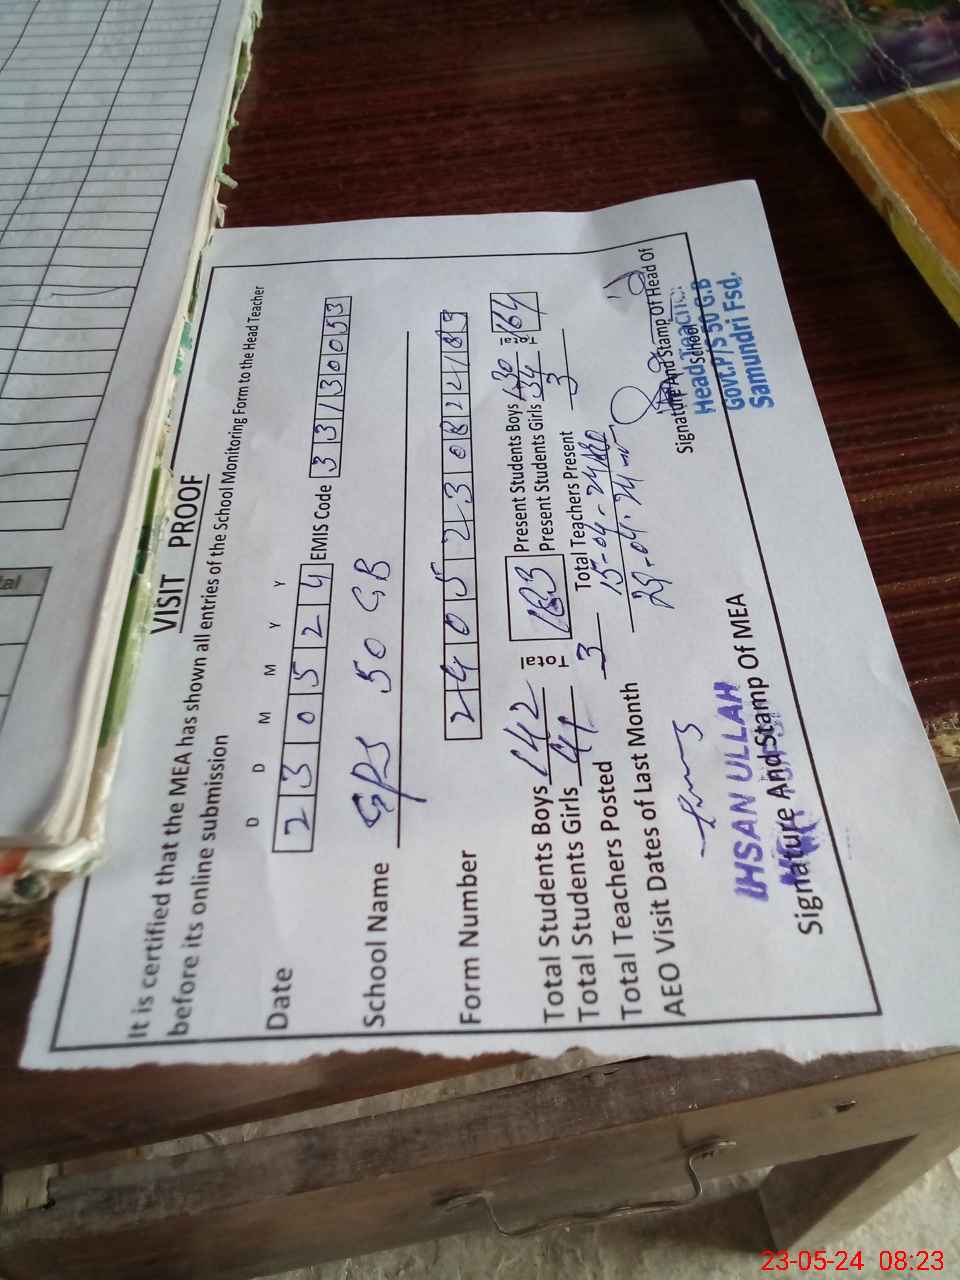 VISIT PROOF
It is certified that the MEA has shown all entries of the School Monitoring Form to the Head Teacher
before its online submission
D D M M Y Y
Date 230524 EMIS Code 33130053
School Name GPS 50 GB
Form Number
Total Students Boys 142 Total 183 Present Students Boys 130 164
Total Students Girls 41 Present Students Girls 34
Total Teachers Posted 3 Total Teachers Present 3
AEO Visit Dates of Last Month 15-04-24
29-04-24
IHSAN ULLAH
Signature And Stamp Of MEA
Signature And Stamp Of Head Of
School
Head Teacher
Govt.P/S 50 G.B
Samundri Fsd.
23-05-24 08:23